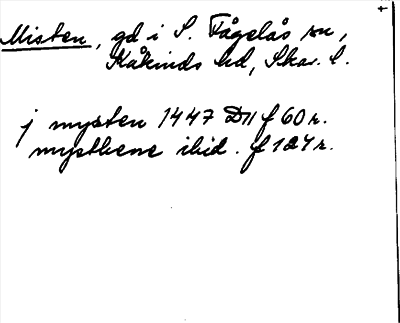 Misten, gd i S. Fågelås sn,
Kåkinds hd, Skar. l.
j mysten 1447 D11 f 60 r.
mysthene ibid. f 127 r.